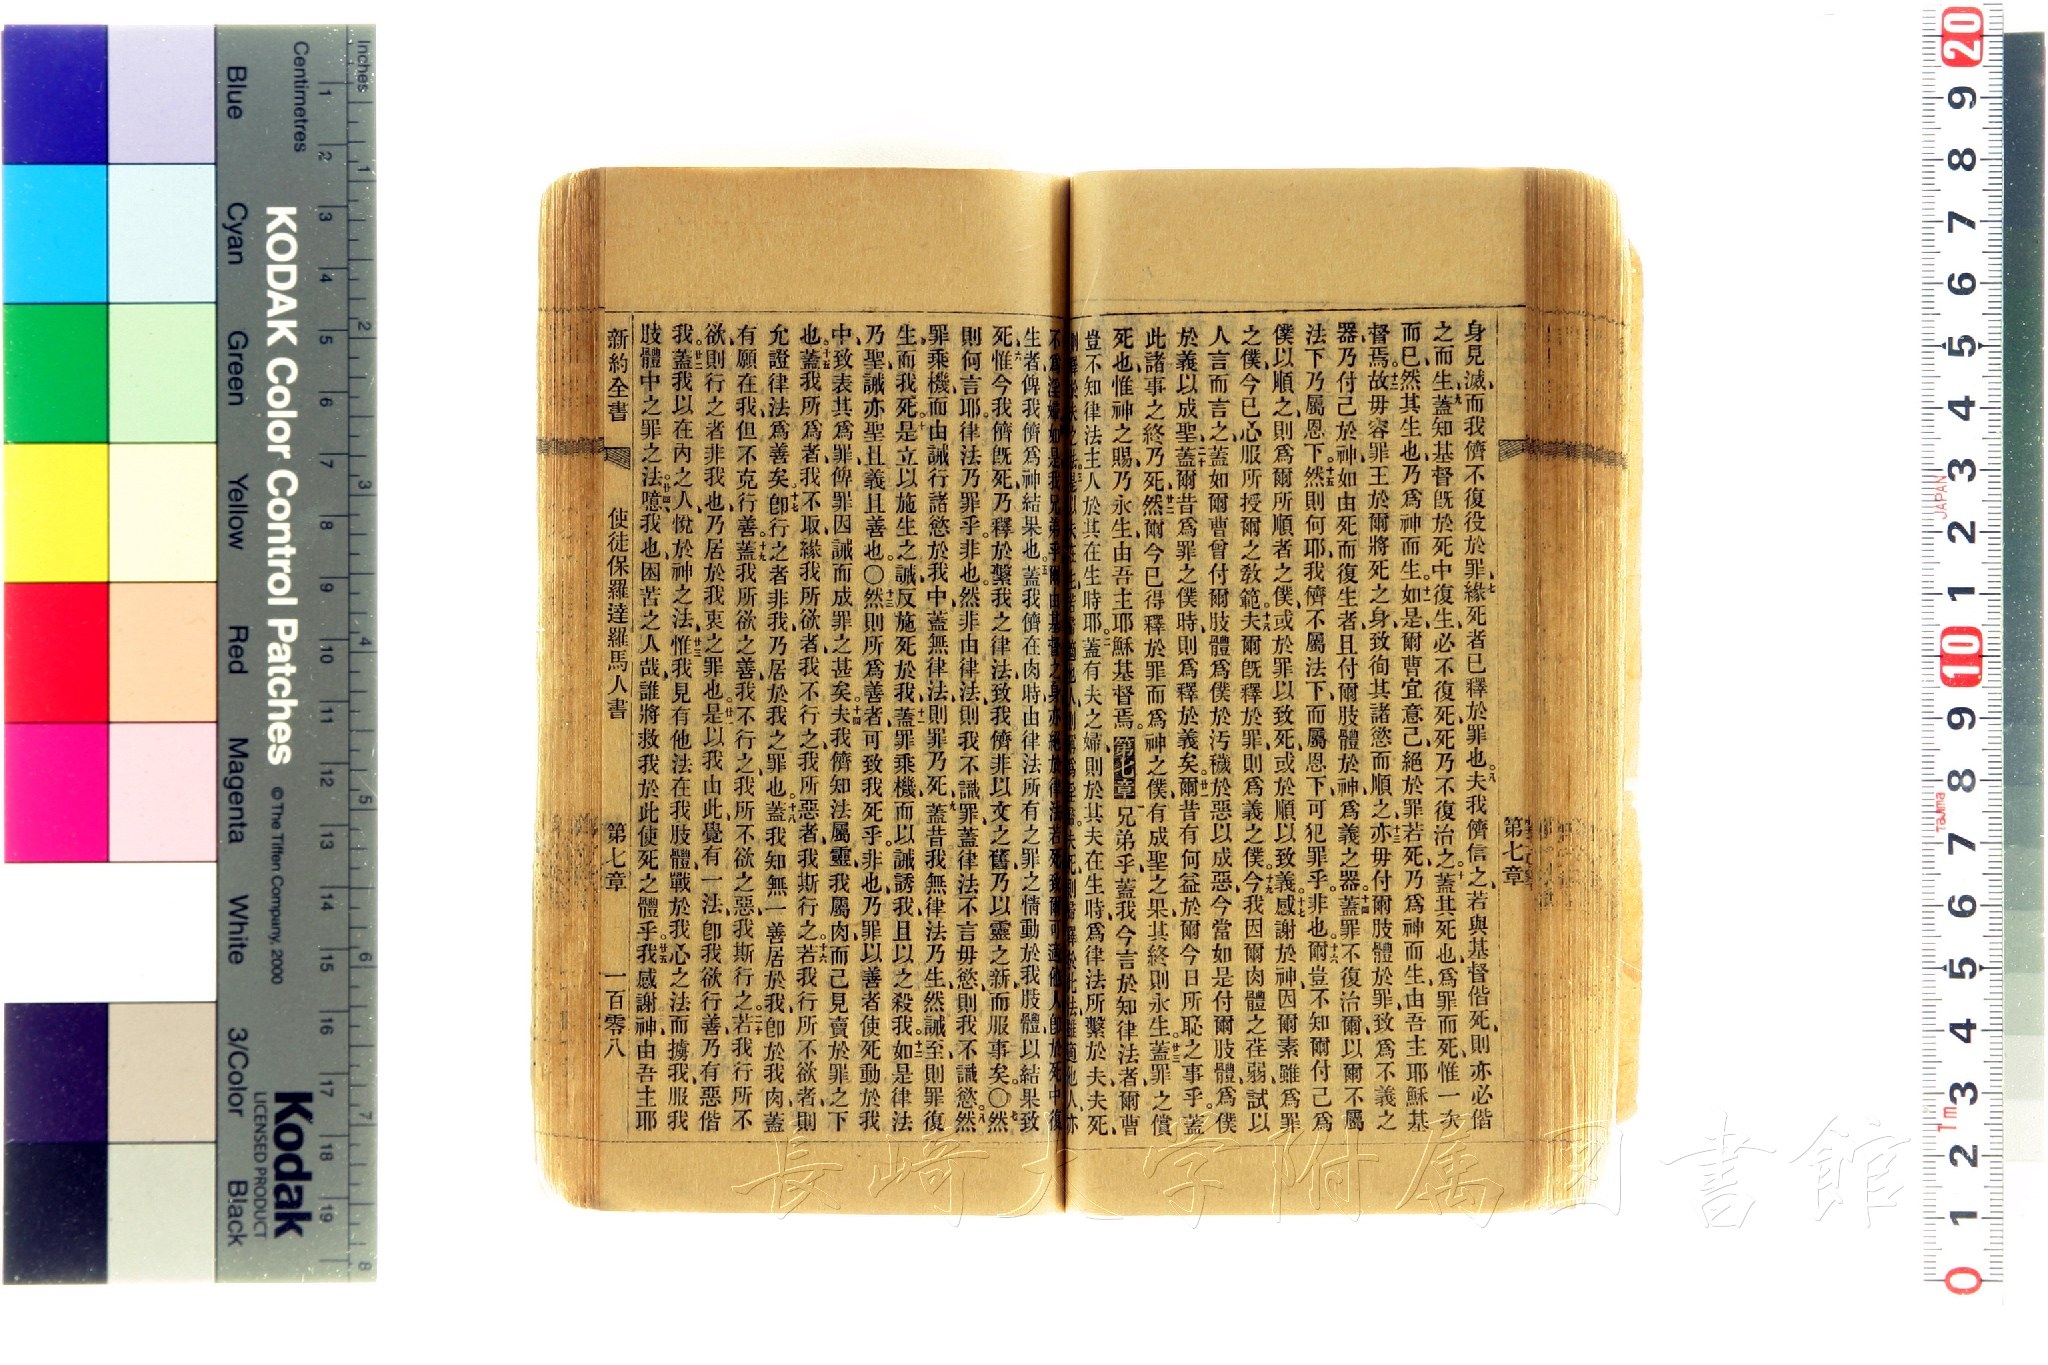 身見滅而我儕不復役於罪緣死者已釋於罪也夫我儕信之若與基督偕死則亦必偕
之而生蓋知基督旣於死中復生必不復死死乃不復治之蓋其死也爲罪而死惟一次
而已然其生也乃爲神而生如是爾曹宜意己絕於罪若死乃爲神而生由吾主耶穌基
督焉故毋容罪王於爾將死之身致徇其諸慾而順之亦毋付爾肢體於罪致爲不義之
器乃付己於神如由死而復生者且付爾肢體於神爲義之器蓋罪不復治爾以爾不屬
法下乃屬恩下然則何耶我儕不屬法下而屬恩下可犯罪乎非也爾豈不知爾付己爲
僕以順之則爲爾所順者之僕或於罪以致死或於順以致義感謝於神因爾素雖爲罪
之僕今已心服所授爾之敎範夫爾旣釋於罪則爲義之僕今我因爾肉體之荏弱試以
人言而言之蓋如爾曹曾付爾肢體爲僕於汚穢於惡以成惡今當如是付爾肢體爲僕
於義以成聖蓋爾昔爲罪之僕時則爲釋於義矣爾昔有何益於爾今日所恥之事乎蓋
此諸事之終乃死然爾今已得釋於罪而爲神之僕有成聖之果其終則永生蓋罪之償
死也惟神之賜乃永生由吾主耶穌基督焉 第七章 兄弟乎蓋我今言於知律法者爾曹
豈不知律法主人於其在生時耶蓋有夫之婦則於其夫在生時爲律法所繫於夫夫死
不爲淫婦如是我兄弟乎爾由基督之身亦絕於律法若死致爾可適他人卽於死中復
生者俾我儕爲神結果也蓋我儕在肉時由律法所有之罪之情動於我肢體以結果致
死惟今我儕旣死乃釋於繫我之律法致我儕非以文之舊乃以靈之新而服事矣〇然
則何言耶律法乃罪乎非也然非由律法則我不識罪蓋律法不言毋慾則我不識慾然
罪乘機而由誡行諸慾於我中蓋無律法則罪乃死蓋昔我無律法乃生然誡至則罪復
生而我死是立以施生之誡反施死於我蓋罪乘機而以誡誘我且以之殺我如是律法
乃聖誡亦聖且義且善也〇然則所爲善者可致我死乎非也乃罪以善者使死動於我
中致表其爲罪俾罪因誡而成罪之甚矣夫我儕知法屬靈我屬肉而己見賣於罪之下
也蓋我所爲者我不取緣我所欲者我不行之我所惡者我斯行之若我行所不欲者則
允證律法爲善矣卽行之者非我乃居於我之罪也蓋我知無一善居於我卽於我肉蓋
有願在我但不克行善蓋我所欲之善我不行之我所不欲之惡我斯行之若我行所不
欲則行之者非我也乃居於我衷之罪也是以我由此覺有一法卽我欲行善乃有惡偕
我蓋我以在內之人悅於神之法惟我見有他法在我肢體戰於我心之法而擄我服我
肢體中之罪之法噫我也困苦之人哉誰將救我於此使死之體乎我感謝神由吾主耶
新約全書 使徒保羅達羅馬人書 第七章 一百零八
第七章
KODAK Color Control Patches
© The Tiffen Company, 2000
Kodak
LICENSED PRODUCT
Inches
Centimetres
Blue
Cyan
Green
Yellow
Red
Magenta
White
3/Color
Black
長崎大学附属図書館
JAPAN
Tajima